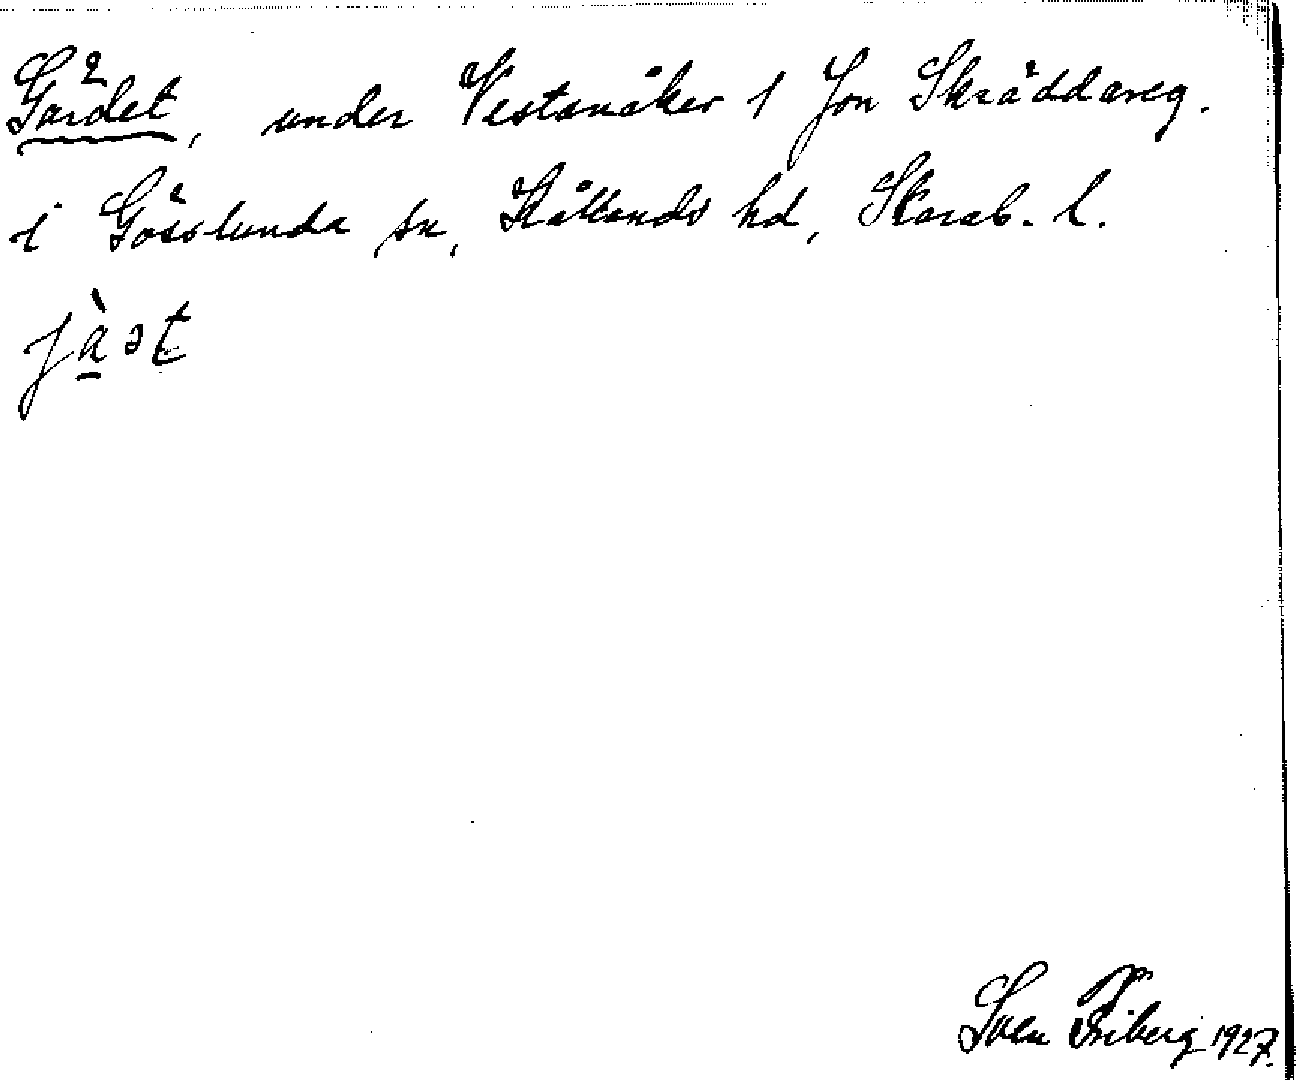 Gärdet, under Vestanåker 1 Jon Skräddareg.
i Gösslunda sn, Kållands hd, Skarab. l.
Sven Friberg 1927.